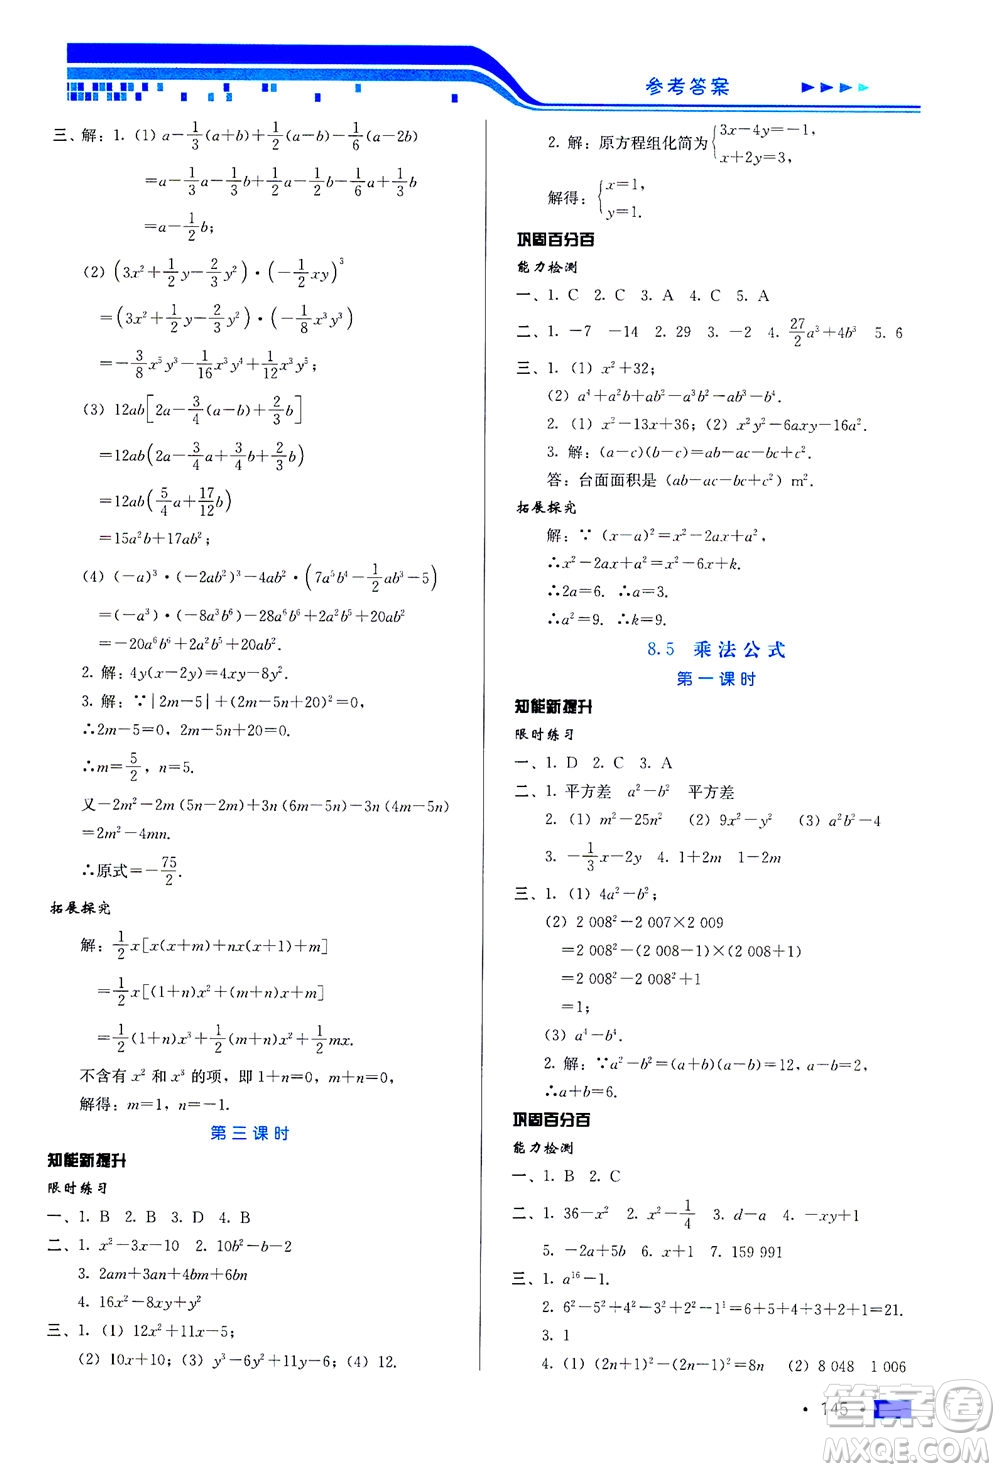 参考答案
三、解：1. (1) a－1/3(a＋b)＋1/2(a－b)－1/6(a－2b)
＝a－1/3a－1/3b＋1/2a－1/2b－1/6a＋1/3b
＝a－1/2b；
(2) (3x²＋1/2y－2/3y²)•(－1/2xy)³
＝(3x²＋1/2y－2/3y²)•(－1/8x³y³)
＝－3/8x⁵y³－1/16x³y⁴＋1/12x³y⁵；
(3) 12ab[2a－3/4(a－b)＋2/3b]
＝12ab(2a－3/4a＋3/4b＋2/3b)
＝12ab(5/4a＋17/12b)
＝15a²b＋17ab²；
(4) (－a)³•(－2ab²)³－4ab²•(7a⁵b⁴－1/2ab³－5)
＝(－a³)•(－8a³b⁶)－28a⁶b⁶＋2a²b⁵＋20ab²
＝－20a⁶b⁶＋2a²b⁵＋20ab².
2. 解：4y(x－2y)＝4xy－8y².
3. 解：∵|2m－5|＋(2m－5n＋20)²＝0,
∴2m－5＝0, 2m－5n＋20＝0.
∴m＝5/2, n＝5.
又－2m²－2m(5n－2m)＋3n(6m－5n)－3n(4m－5n)
＝2m²－4mn.
∴原式＝－75/2.
拓展探究
解：1/2x[x(x＋m)＋nx(x＋1)＋m]
＝1/2x[(1＋n)x²＋(m＋n)x＋m]
＝1/2(1＋n)x³＋1/2(m＋n)x²＋1/2mx.
不含有 x² 和 x³ 的项, 即 1＋n＝0, m＋n＝0.
解得：m＝1, n＝－1.
第三课时
知能新提升
限时练习
一、1. B 2. B 3. D 4. B
二、1. x²－3x－10 2. 10b²－b－2
3. 2am＋3an＋4bm＋6bn
4. 16x²－8xy＋y²
三、1. (1) 12x²＋11x－5；
(2) 10x＋10；(3) y³－6y²＋11y－6；(4) 12.
2. 解：原方程组化简为{3x－4y＝－1, x＋2y＝3,
解得：{x＝1, y＝1.
巩固百分百
能力检测
一、1. C 2. C 3. A 4. C 5. A
二、1. －7 －14 2. 29 3. －2 4. 27/2a³＋4b³ 5. 6
三、1. (1) x²＋32；
(2) a⁴＋a²b＋ab²－a³b²－ab³－b⁴.
2. (1) x²－13x＋36；(2) x²y²－6axy－16a².
3. 解：(a－c)(b－c)＝ab－ac－bc＋c²,
答：台面面积是 (ab－ac－bc＋c²) m².
拓展探究
解：∵ (x－a)²＝x²－2ax＋a²,
∴x²－2ax＋a²＝x²－6x＋k.
∴2a＝6. ∴a＝3.
∴a²＝9. ∴k＝9.
8.5 乘法公式
第一课时
知能新提升
限时练习
一、1. D 2. C 3. A
二、1. 平方差 a²－b² 平方差
2. (1) m²－25n² (2) 9x²－y² (3) a²b²－4
3. －1/3x－2y 4. 1＋2m 1－2m
三、1. (1) 4a²－b²；
(2) 2 008²－2 007×2 009
＝2 008²－(2 008－1)×(2 008＋1)
＝2 008²－2 008²＋1
＝1；
(3) a⁴－b⁴.
2. 解：∵a²－b²＝(a＋b)(a－b)＝12, a－b＝2,
∴a＋b＝6.
巩固百分百
能力检测
一、1. B 2. C
二、1. 36－x² 2. x²－1/4 3. d－a 4. －xy＋1
5. －2a＋5b 6. x＋1 7. 159 991
三、1. a¹⁶－1.
2. 6²－5²＋4²－3²＋2²－1²＝6＋5＋4＋3＋2＋1＝21.
3. 1
4. (1) (2n＋1)²－(2n－1)²＝8n (2) 8 048 1 006
• 145 •
答案卷
MXQE.COM